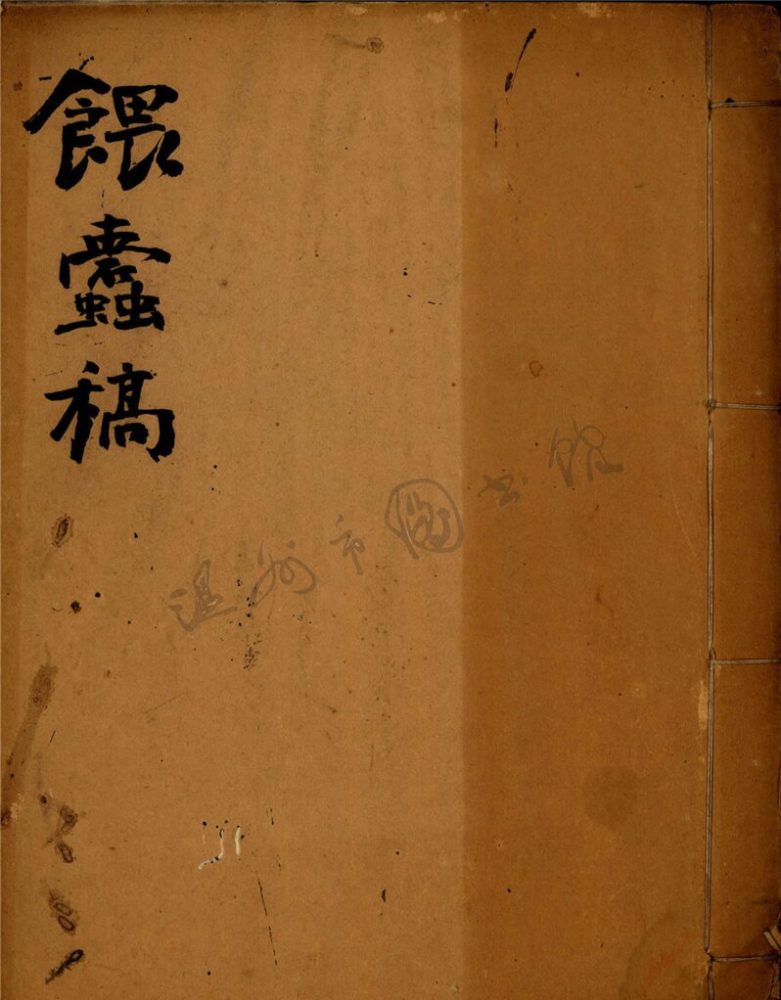 餵蠹稿
温州市图书馆